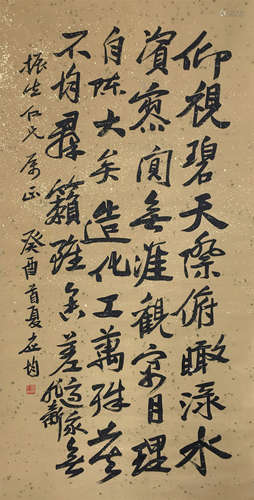 仰視碧天際俯瞰淥水
濱寥閴無涯觀寓目理
自陳大矣造化工萬殊莫
不均羣籟雖參差適我無
非新
振生仁兄属正 癸酉首夏